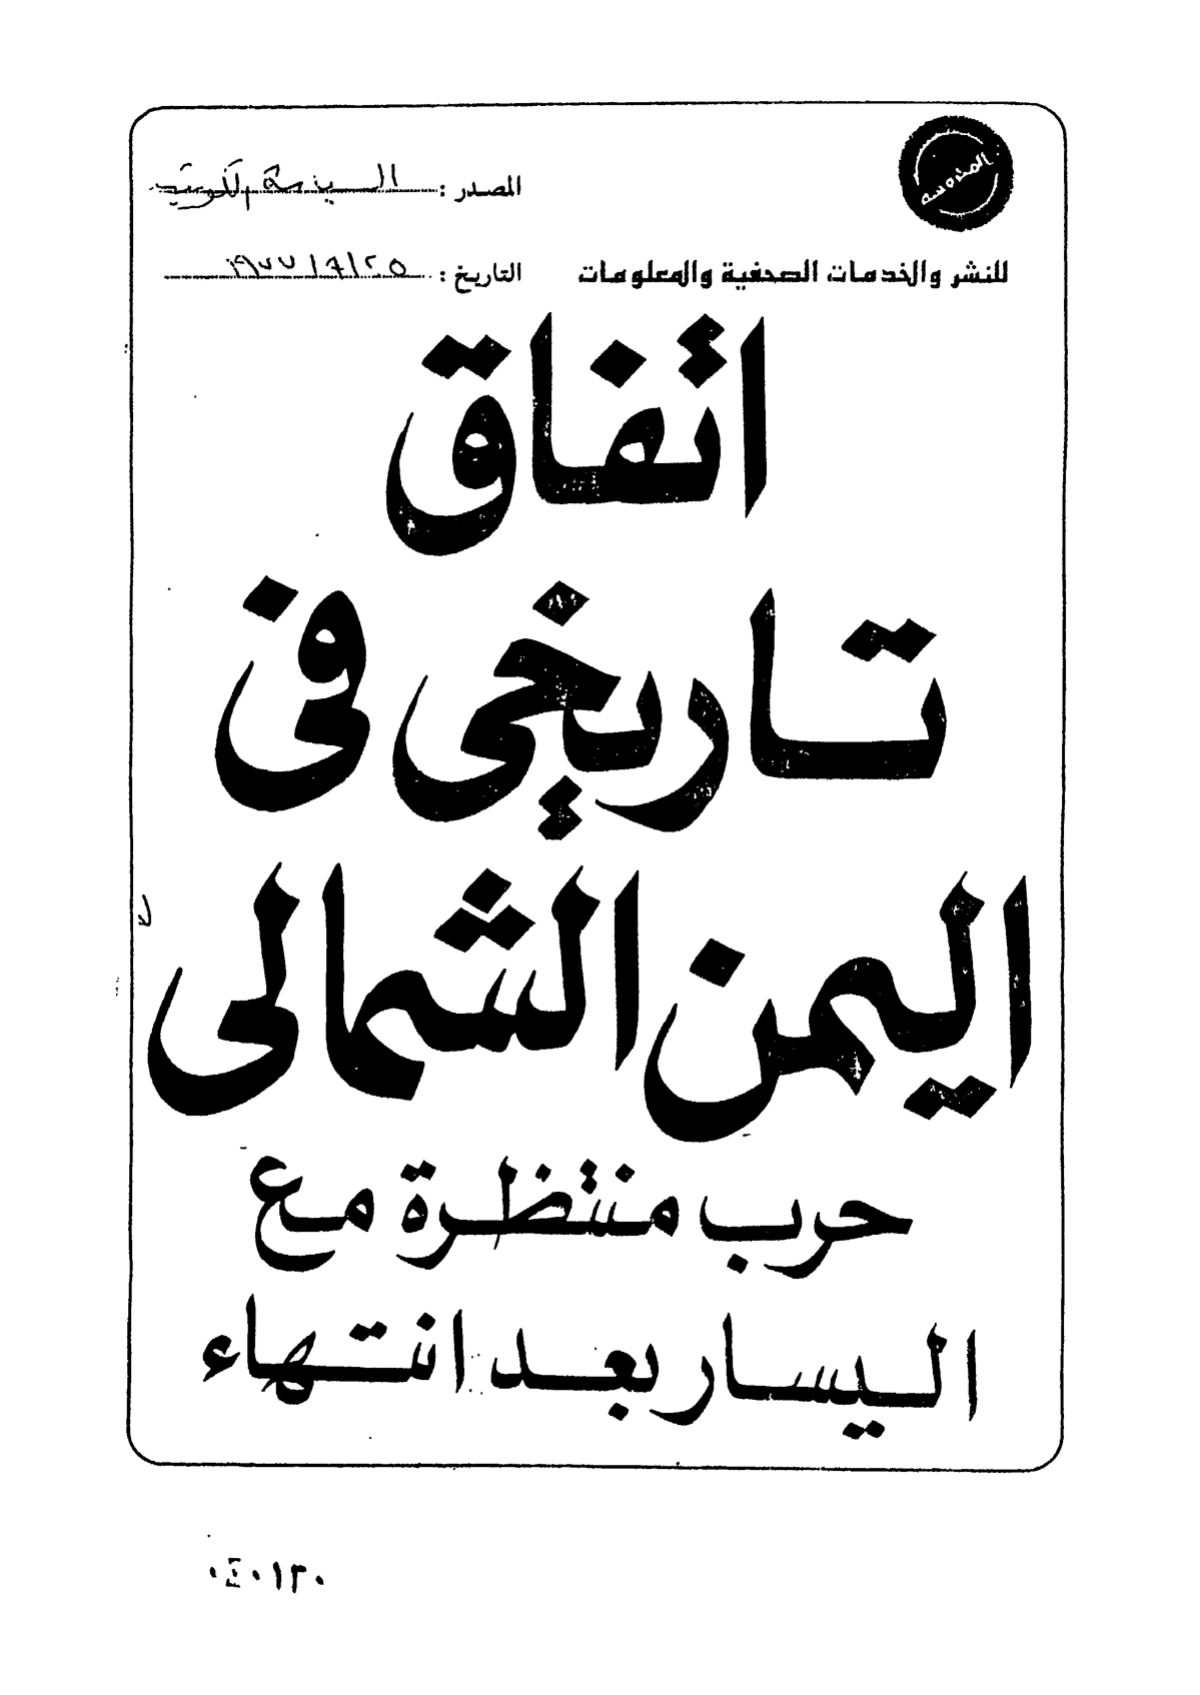 المحروسة
المصدر : السياسة الكويتية
للنشر والخدمات الصحفية والمعلومات
التاريخ : ٢٥ / ٦ / ١٩٧٧
اتفاق
تاريخى فى
اليمن الشمالى
حرب منتظرة مع
اليسار بعد انتهاء